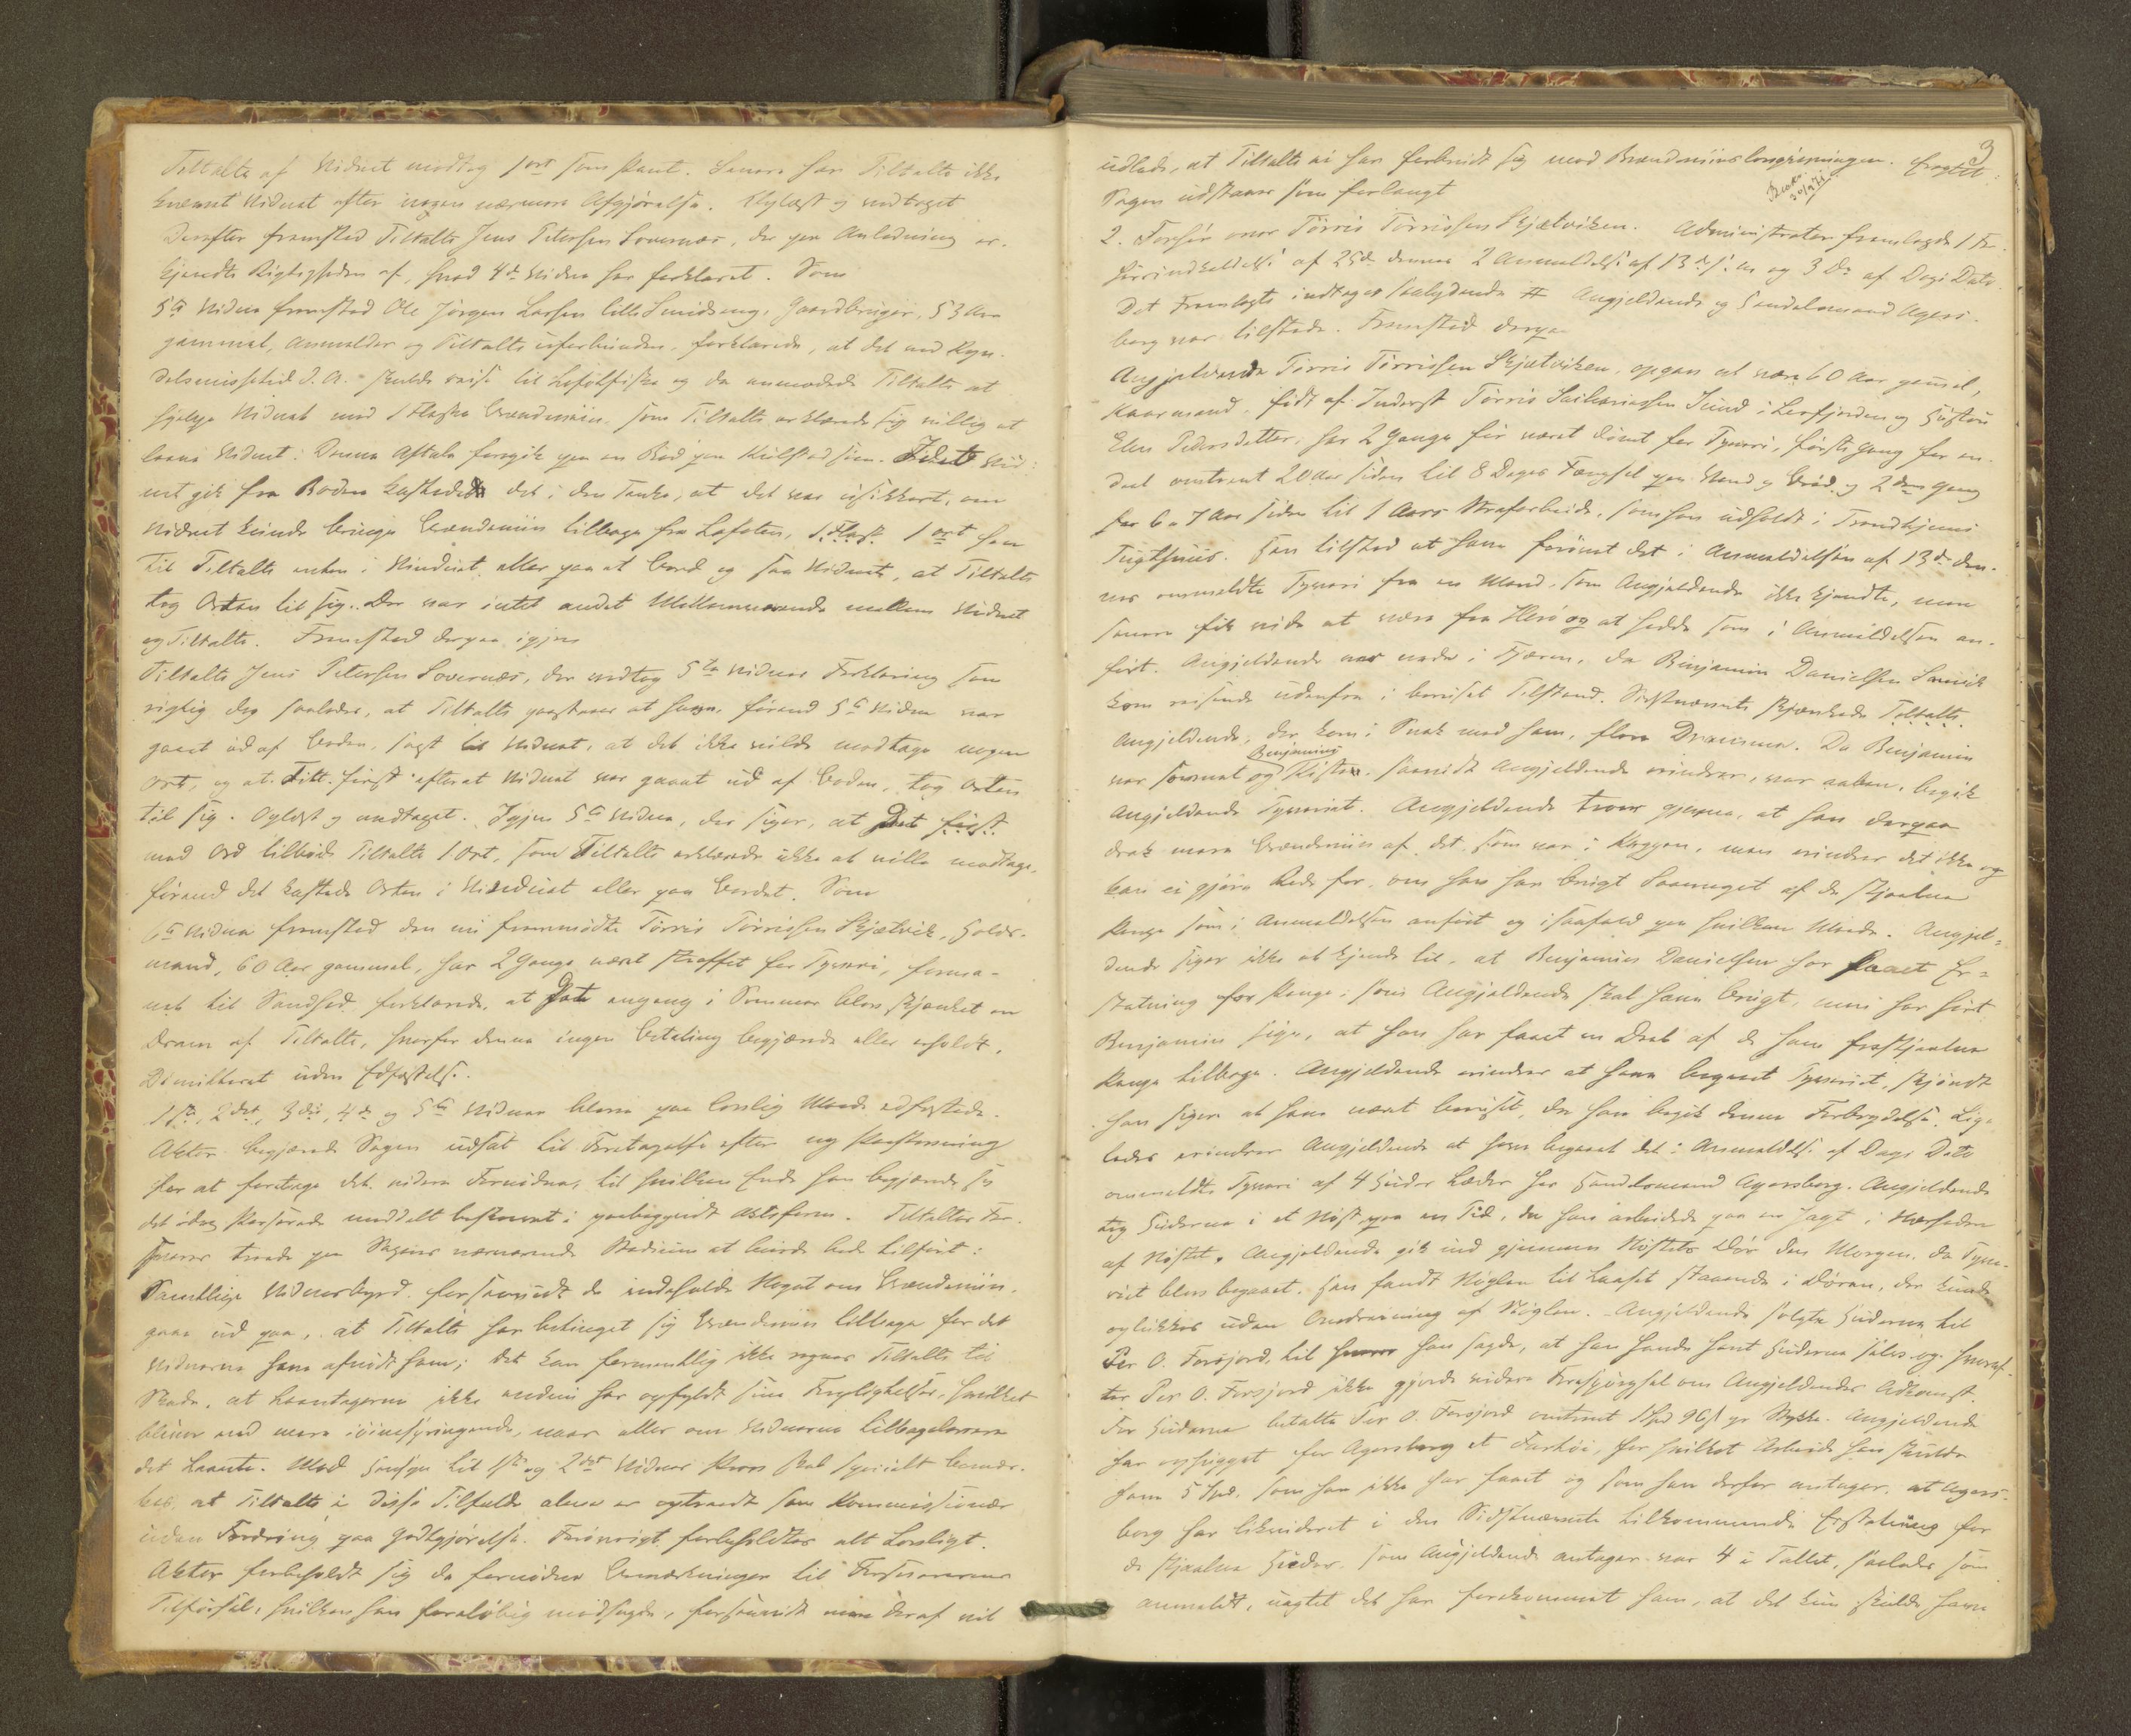 Tiltalte af Vidnet modtog 1 ort som Pant. Senere har Tiltalte ikke
krævet Vidnet efter nogen nærmere Afgjørelse. Oplæst og vedtaget
Derefter fremstod Tiltalte Jens Petersen Sovernæs, der paa Anledning er-
kjendte Rigtigheden af, hvad 4de Vidne har forklaret. Som
5te Vidne fremstod Ole Jørgen Larsen lille Smidseng, Gaardbruger, 53 Aar
gammel, Anmelder og Tiltalte uforbunden, forklarede, at det ved Kyn-
delsmissetid d. A. skulde reise til Lofotfiske og da anmodede Tiltalte at
hjelpe Vidnet med 1 Flaske Brændeviin, som Tiltalte erklærede sig villig at
laane Vidnet. Denne Aftale foregik paa en Bod paa Kulstadsjøen. Idet Vid-
net gik fra Boden kastede det i den Tanke, at det var usikkert, om
Vidnet kunde bringe Brændeviin tilbage fra Lofoten, 1 ort hen
til Tiltalte enten i Vinduet eller paa et Bord og saa Vidnet, at Tiltalte
tog Orten til sig. Der var intet andet Mellemværende mellem Vidnet
og Tiltalte. Fremstod derpaa igjen
Tiltalte Jens Petersen Sovernæs, der vedtog 5te Vidnes Forklaring som
rigtig dog saaledes, at Tiltalte paastaaer at have, førend 5te Vidne var
gaaet ud af Boden, sagt til Vidnet, at det ikke vilde modtage nogen
Ort, og at Tilt. først efterat Vidnet var gaaet ud af Boden, tog Orten
til sig. Oplæst og vedtaget. Igjen 5te Vidne, der siger, at det først
med Ord tilbød Tiltalte 1 Ort, som Tiltalte erklærede ikke at ville modtage,
førend det kastede Orten i Vinduet eller paa Bordet. Som
6te Vidne fremstod den nu fremmødte Tørris Tørrissen Skjætvik, Holds-
mand, 60 Aar gammel, har 2 Gange været straffet for Tyveri, forma-
net til Sandhed forklarede, at engang i Sommer blev skjænket en
Dram af Tiltalte, hvorfor denne ingen Betaling begjærede eller erholdt.
Dimitteret uden Edfæstelse.
1ste, 2det, 3die, 4de og 5te Vidner bleve paa lovlig Maade edfæstede.
Aktor begjærede Sagen udsat til Foretagelse efter ny Paastevning
for at foretage det videre Fornødne, til hvilken Ende han begjærede sig
det idag Passerede meddelt beskrevet i paabegyndt Aktsform. Tiltaltes For-
svarer troede paa Sagens nærværende Stadium at burde lade tilført:
Samtlige Vidnesbyrd, forsaavidt de indeholde Noget om Brændeviin,
gaae ud paa, at Tiltalte har betinget sig Brændeviin tilbage for det
Vidnerne have afnødt ham; det kan formentlig ikke regnes Tiltalte til
Skade, at Laantagerne ikke endnu har opfyldt sine Forpligtelser, hvilket
bliver end mere iøinespringende, naar eller om Vidnerne tilbagelevere
det Laante. Med Hensyn til 1ste og 2det Vidnes Prov skal specielt bemær-
kes, at Tiltalte i disse Tilfælde alene er optraadt som Kommissionær
uden Fordring paa Godtgjørelse. Forøvrigt forbeholdtes alt Lovligt.
Aktor forbeholdt sig de fornødne Bemærkninger til Forsvarerens
Tilførsel, hvilken han foreløbig modsagde, forsaavidt man deraf vil
3
udlede, at Tiltalte ei har forbrudt sig mod Brændeviinslovgivningen.
Sagen udstaaer som forlangt
2. Forhør over Tørris Tørrissen Skjetviken. Administrator fremlagde 1 For-
hørsindkaldelse af 25de dennes 2 Anmeldelse af 13de s. M. og 3 Do af Dags Dato.
Det Fremlagte indtages saalydende # Angjeldende og Handelsmand Agers-
borg var tilstede. Fremstod derpaa
Angjeldende Tørris Tørrissen Skjetviken, opgav at være 60 Aar gammel,
Kaarmand, født af Inderst Tørris Sachariassen Sund i Lerfjorden og Hustru
Elen Pedersdatter, har 2 Gange før været dømt for Tyveri, første Gang for en-
deel omtrent 20 Aar siden til 8 Dages Fængsel paa Vand og Brød og 2den Gang
for 6 a 7 Aar siden til 1 Aars Strafarbeide, som han udholdt i Trondhjems
Tugthuus. Han tilstod at have forøvet det i Anmeldelsen af 13de den-
nes ommeldte Tyveri fra en Mand, som Angjeldende ikke kjendte, men
senere fik vide at være fra Herø og at hedde som i Anmeldelsen an-
ført. Angjeldende var nede i Fjæren, da Benjamin Danielsen
kom reisende udenfra i beruset Tilstand. Sidstnævnte skjænkede Tiltalte
Angjeldende, der kom i Snak med ham, flere Dramme. Da Benjamin
var sovnet og Benjamins Kiste, saavidt Angjeldende erindrer, var aaben, begik
Angjeldende Tyveriet. Angjeldende troer gjerne, at han derpaa
drak mere Brændeviin af det, som var i Kaggen, men erindrer det ikke og
kan ei gjøre Rede for, om han har brugt Saameget af de stjaalne
Penge som i Anmeldelsen anført og isaafald paa hvilken Maade. Angjel-
dende siger ikke at kjende til, at Benjamin Danielsen har faaet Er-
statning for Penge, som Angjeldende skal have brugt, men har hørt
Benjamin sige, at han har faaet en Deel af de ham frastjaalne
Penge tilbage. Angjeldende erindrer at have begaaet Tyveriet, skjøndt
han siger at have været beruset, da han begik denne Forbrydelse. Lige-
ledes erindrer Angjeldende at have begaaet det i Anmeldelse af Dags Dato
ommeldte Tyveri af 4 Huder Læder hos Handelsmand Agersborg. Angjeldende
tog Huderne i et Nøst paa en Tid, da han arbeidede paa en Jagt i Nærheden
af Nøstet. Angjeldende gik ind gjennem Nøstets Dør den Morgen, da Tyve-
riet blev begaaet. Han fandt Nøglen til Laaset staaende i Døren, der kunde
oplukkes uden Omdreining af Nøglen. Angjeldende solgte Huderne til
Per O. Forsjord, til han sagde, at han havde faaet Huderne og hvoref-
ter Per O. Forsjord ikke gjorde videre Forespørgsel om Angjeldendes Adkomst.
For Huderne betalte Per O. Forsjord omtrent 1 Spd 96 s pr Stykke. Angjeldende
har ophugget for Agersborg et Fartøi, for hvilket Arbeide han skulde
have 5 Spd, som han ikke har faaet og som han derfor antager, at Agers-
borg har likvideret i den Sidstnævnte tilkommende Erstatning for
de stjaalne Huder, som Angjeldende antager var 4 i Tallet, saaledes som
anmeldt, uagtet det har forekommet ham, at det kun skulde have